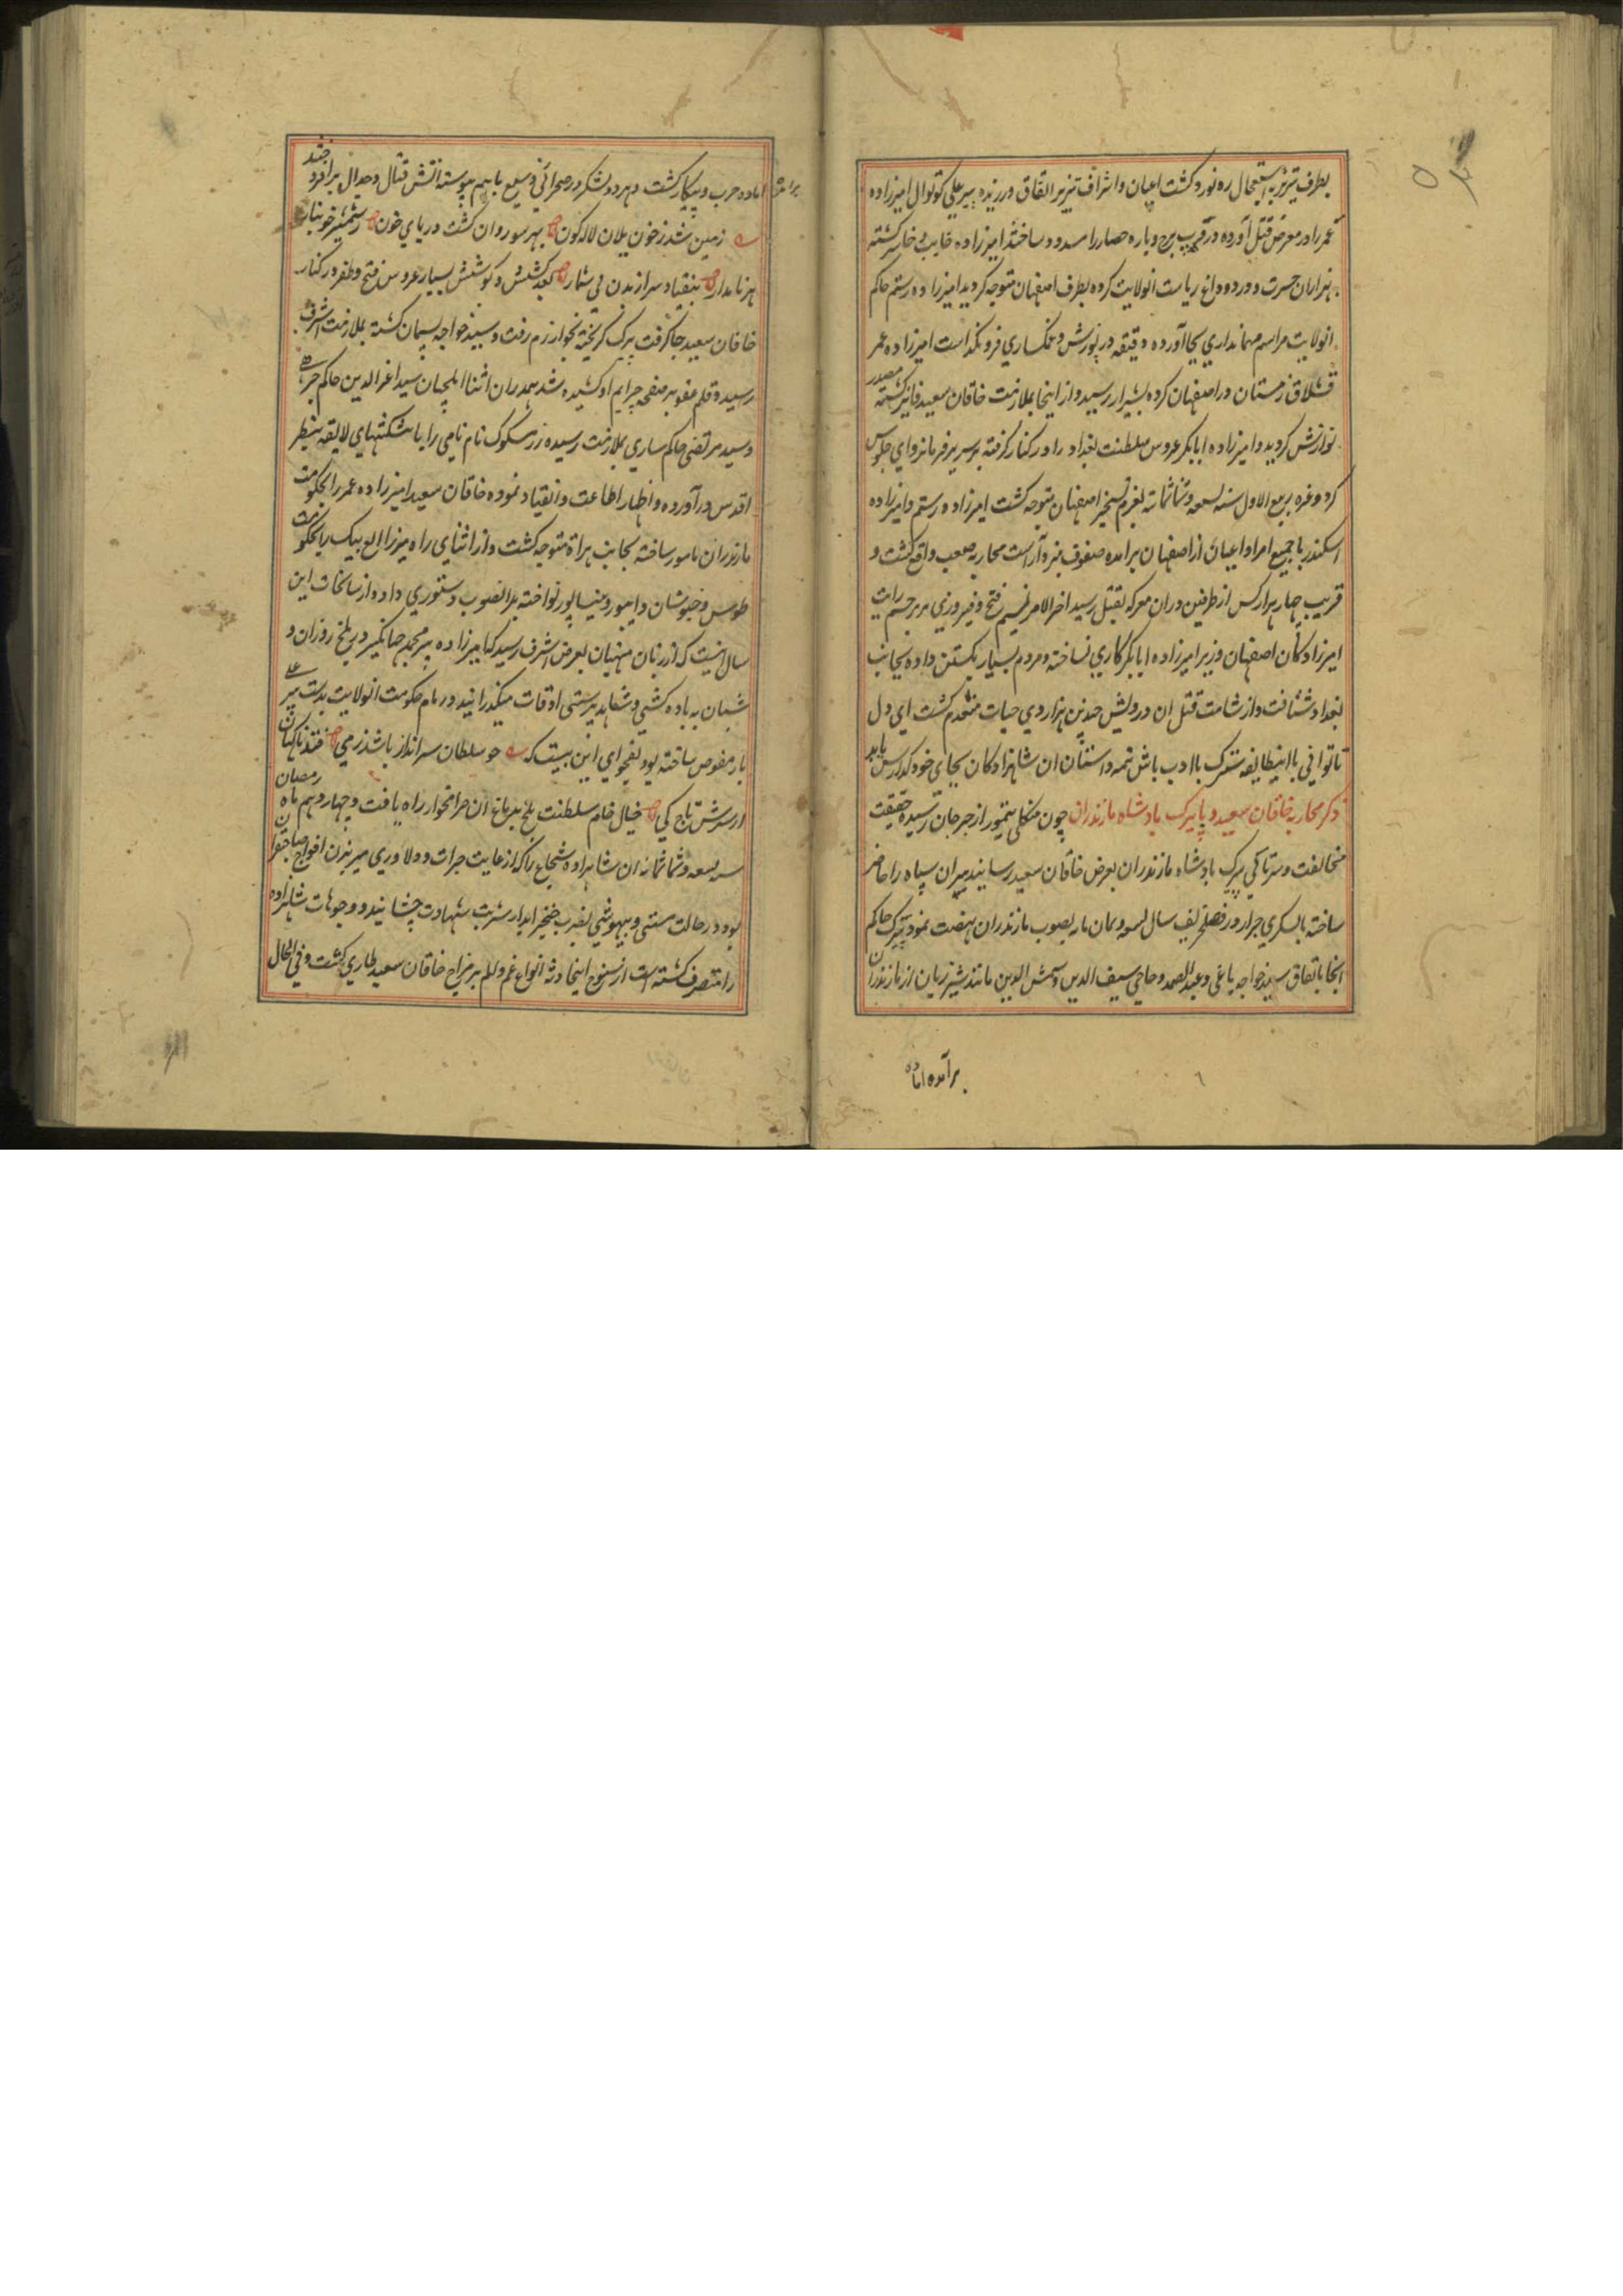 بطرف تبریز به استعجال ره نورد گشت اعیان و اشراف تبریز اتفاق ورزیده پیر علی کوتوال امیرزاده
عمر را در معرض قتل آورده در قریب برج و باره حصار را مسدود ساختند امیرزاده خایب و خاسر گشته
هزاران حسرت و درد وداع ریاست انولایت کرده بطرف اصفهان متوجه گردید امیرزاده رستم حاکم
انولایت مراسم مهمانداری بجا آورده دقیقه در پوزش و غمکساری فرو نگذاست امیرزاده عمر
قشلاق زمستان در اصفهان کرده بشیراز رسید و از اینجا بملازمت خاقان سعید فایز گشته مصدر
نوازش گردید و امیرزاده ابابکر عروس سلطنت بغداد را در کنار گرفته بر سریر فرمانروای جلوس
کرد و غره ربیع الاول سنه تسعه و ثمانمائه بعزم تسخیر اصفهان متوجه گشت امیرزاده رستم و امیرزاده
اسکندر با جمیع امرا و اعیان از اصفهان برامده صفوف نبرد آراست محاربه صعب واقع گشت و
قریب چهار هزار کس از طرفین دران معرکه بقتل رسید اخر الامر نسیم فتح و فیروزی بر پرچم رایت
امیرزادکان اصفهان وزیر امیرزاده ابابکر کاری نساخته و مردم بسیار بکشتن داده بجانب
بغداد شتافت و از شامت قتل ان درویش چندین هزار روی حیات منعدم گشت ای دل
تا توانی با اینطایفه متبرک باادب باش تتمه داستان ان شاهزادکان بجای خود گذارش یابد
ذکر محاربه خاقان سعید و با پیرک پادشاه مازندران چون منکلی تیمور از جرجان رسیده حقیقت
مخالفت و سرتاکی پیرک پادشاه مازندران بعرض خاقان سعید رسانیند پیران سپاه را حاضر
ساخته بالسکری جرار در فصل خریف سال تسعه و ثمان مایه بصوب مازندران نهضت نمود پیرک حاکم
انجا باتفاق سید خواجه یاغی و عبد الصمد و حاجی سیف الدین و شمس الدین مانند شیر ژیان از مازندران
برآمده اماده
اماده حرب و پیکار گشت و هر دو لشکر در صحرائی وسیع باهم پیوسته اتش قتال و جدال برافروختند
زمین شد ز خون یلان لاله کون بهر سو روان گشت دریای خون ز شمشیر خونبار
هر نامدار بیفتاد سر از بدن بی شمار بعد کشش و کوشش بسیار عروس فتح و ظفر در کنار
خاقان سعید جا گرفت پیرک گریخته بخوارزم رفت و سید خواجه پسیمان گشته بملازمت اشرف
رسیده قلم عفو بر صفحه جرایم او کشیده شد همدران اثنا ایلچیان سید اعز الدین حاکم
و سید مرتضی حاکم ساری بملازمت رسیده زر مسکوک نام نامی را با پیشکشهای لایقه بنظر
اقدس در آورده و اظهار اطاعت و انقیاد نموده خاقان سعید امیرزاده عمر را بحکومت
مازندران مامور ساخته بجانب هراة متوجه گشت و از اثنای راه میرزا الوغ بیک را بحکومت
طوس و خبوشان و ابیورد و نیسابور نواخته بدانصوب دستوری داده از سانحات این
سال انیست که از زبان منهیان بعرض اشرف رسید که امیرزاده پیر محمد جهانگیر در بلخ روزان و
شبان به باده کشی و شاهد پرستی اوقات میگذرانید و زمام حکومت انولایت بدست پیر علی
باز مفوض ساخته بود بفحوای این بیت که چو سلطان سرانداز باشد ز می فتد ناکهان
از سرش تاج کی خیال خام سلطنت بلخ بدماغ ان حرامخوار راه یافت و چهاردهم ماه رمضان
سنه تسعه و ثمانمائه ان شاهزاده شجاع را که از غایت جرات و دلاوری میربدن افواج صاحبقران
بود در حالت مستی و بیهوشی بضرب خنجر ابدار شربت شهادت چشانید و وجوهات شاهزاده
را متصرف گشته است از سنوح اینحادثه انواع غم و الم بر مزاج خاقان سعید طاری گشت و فی الحال